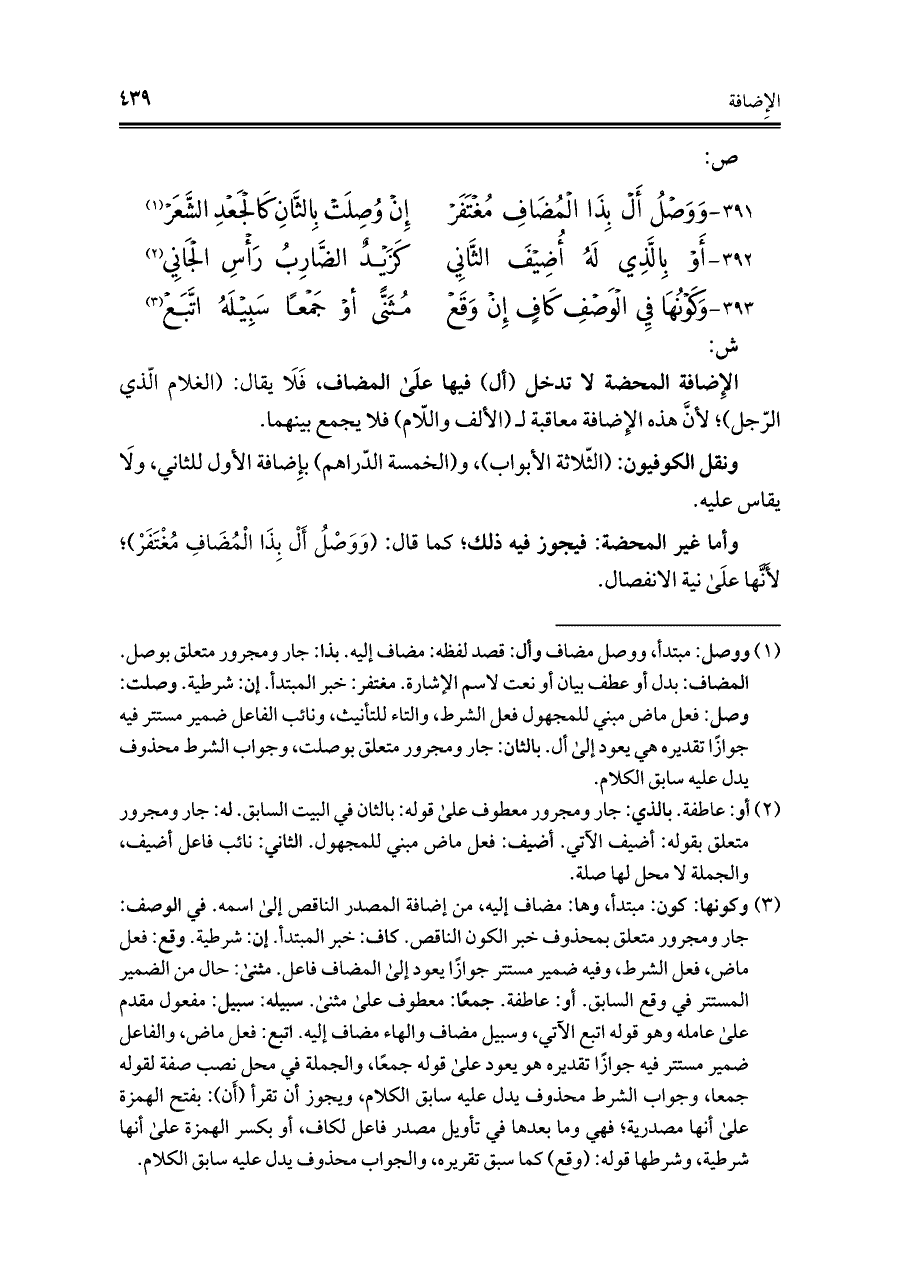 الإِضافة ٤٣٩
ص:
٣٩١-وَوَصْلُ أَلْ بِذَا الْمُضَافِ مُغْتَفَرْ إِنْ وُصِلَتْ بِالثَّانِ كَالْجَعْدِ الشَّعَرْ(١)
٣٩٢-أَوْ بِالَّذِي لَهُ أُضِيْفَ الثَّانِي كَزَيْـدٌ الضَّارِبُ رَأْسِ الْجَانِي(٢)
٣٩٣-وَكَوْنُهَا فِي الْوَصْفِ كَافٍ إِنْ وَقَعْ مُـثَنًّى أوْ جَمْعـًا سَبِيْلَهُ اتَّبَـعْ(٣)
ش:
الإِضافة المحضة لا تدخل (أل) فيها علَىٰ المضاف، فَلَا يقال: (الغلام الّذي
الرّجل)؛ لأنَّ هذه الإِضافة معاقبة لـ (الألف واللّام) فلا يجمع بينهما.
ونقل الكوفيون: (الثّلاثة الأبواب)، و(الخمسة الدّراهم) بإِضافة الأول للثاني، ولَا
يقاس عليه.
وأما غير المحضة: فيجوز فيه ذلك؛ كما قال: (وَوَصْلُ أَلْ بِذَا الْمُضَافِ مُغْتَفَرْ)؛
لأَنَّها علَىٰ نية الانفصال.
(١) ووصل: مبتدأ، ووصل مضاف وأل: قصد لفظه: مضاف إليه. بذا: جار ومجرور متعلق بوصل.
المضاف: بدل أو عطف بيان أو نعت لاسم الإشارة. مغتفر: خبر المبتدأ. إن: شرطية. وصلت:
وصل: فعل ماض مبني للمجهول فعل الشرط، والتاء للتأنيث، ونائب الفاعل ضمير مستتر فيه
جوازًا تقديره هي يعود إلىٰ أل. بالثان: جار ومجرور متعلق بوصلت، وجواب الشرط محذوف
يدل عليه سابق الكلام.
(٢) أو: عاطفة. بالذي: جار ومجرور معطوف علىٰ قوله: بالثان في البيت السابق. له: جار ومجرور
متعلق بقوله: أضيف الآتي. أضيف: فعل ماض مبني للمجهول. الثاني: نائب فاعل أضيف،
والجملة لا محل لها صلة.
(٣) وكونها: كون: مبتدأ، وها: مضاف إليه، من إضافة المصدر الناقص إلىٰ اسمه. في الوصف:
جار ومجرور متعلق بمحذوف خبر الكون الناقص. كاف: خبر المبتدأ. إن: شرطية. وقع: فعل
ماض، فعل الشرط، وفيه ضمير مستتر جوازًا يعود إلىٰ المضاف فاعل. مثنىٰ: حال من الضمير
المستتر في وقع السابق. أو: عاطفة. جمعًا: معطوف علىٰ مثنىٰ. سبيله: سبيل: مفعول مقدم
علىٰ عامله وهو قوله اتبع الآتي، وسبيل مضاف والهاء مضاف إليه. اتبع: فعل ماض، والفاعل
ضمير مستتر فيه جوازًا تقديره هو يعود علىٰ قوله جمعًا، والجملة في محل نصب صفة لقوله
جمعا، وجواب الشرط محذوف يدل عليه سابق الكلام، ويجوز أن تقرأ (أَن): بفتح الهمزة
علىٰ أنها مصدرية؛ فهي وما بعدها في تأويل مصدر فاعل لكاف، أو بكسر الهمزة علىٰ أنها
شرطية، وشرطها قوله: (وقع) كما سبق تقريره، والجواب محذوف يدل عليه سابق الكلام.